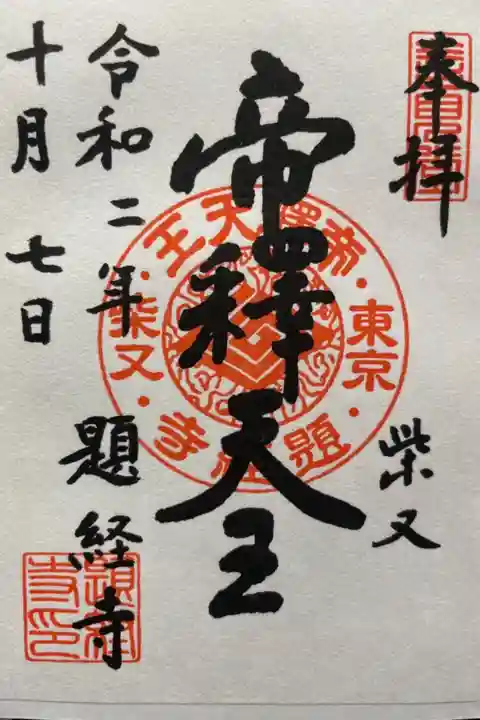 奉拝
柴又
帝釋天王
令和二年
十月七日
題経寺
帝釋天王
東京
柴又
題経寺
題経寺印